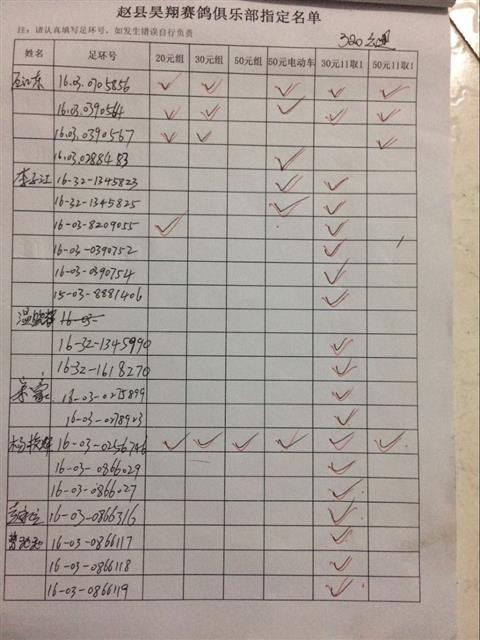 赵县昊翔赛鸽俱乐部指定名单
注:请认真填写足环号,如发生错误自行负责
姓名 足环号 20元组 30元组 50元组 50元电动车 30元11取1 50元11取1
16.03.0705856
16.03.0390564
16.03.0390567
16.03.0288483
16-32-1345823
16-32-1345825
16-03-8209055
16-03-0390752
16-03-0390754
15-03-8881406
16-03-
16-32-1345990
16-32-1618270
16-03-0275899
16-03-0278923
16-03-0256746
16-03-0866029
16-03-0866027
16-03-0866316
16-03-0866117
16-03-0866118
16-03-0866119